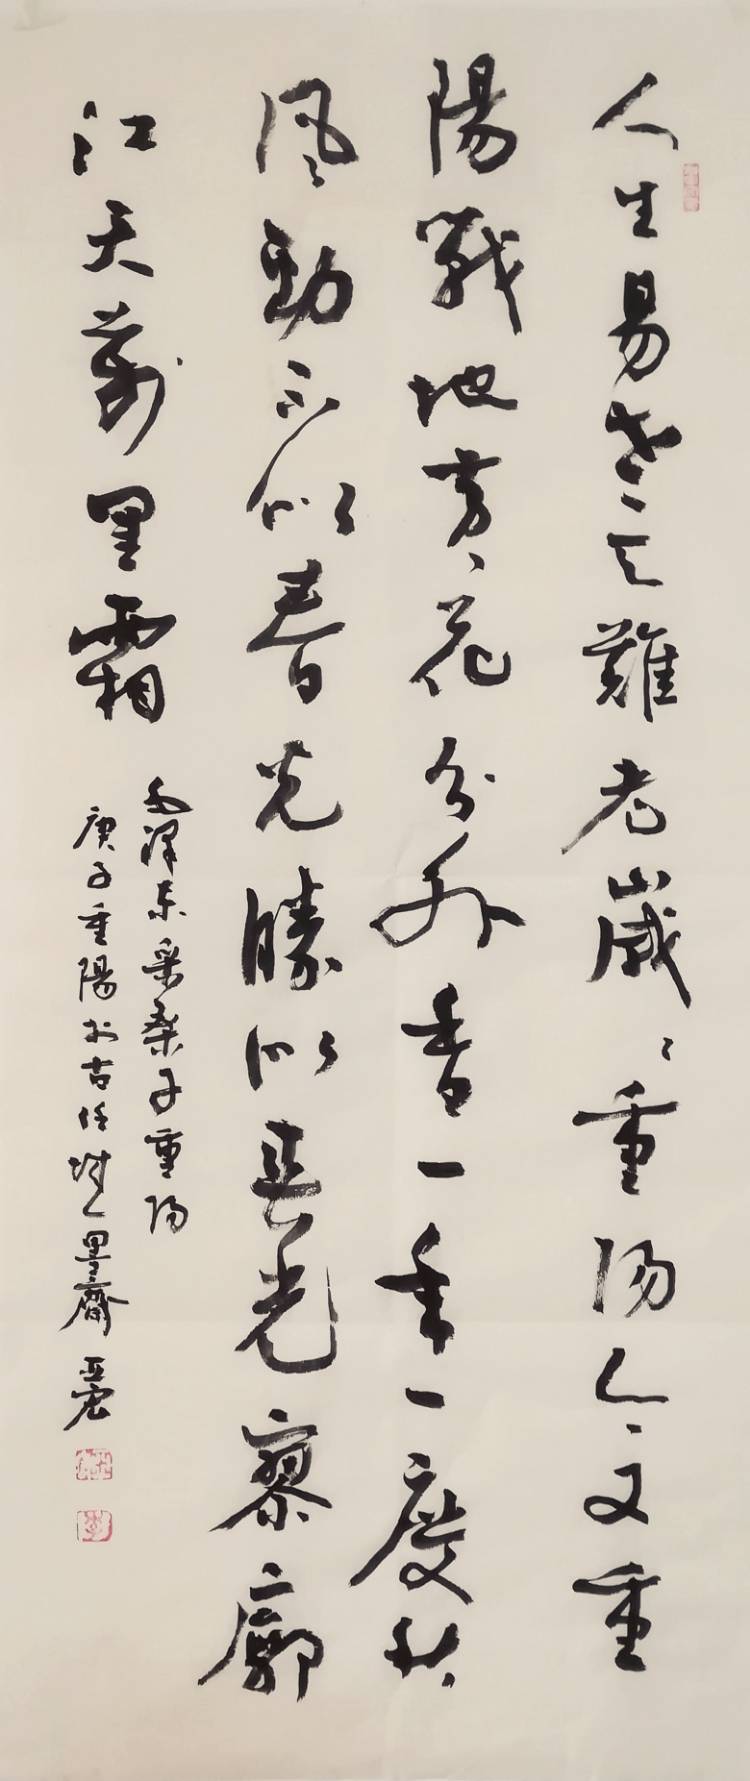 人生易老天難老歲々重陽今又重
陽戰地黄花分外香一年一度秋
風勁不似春光勝似春光寥廓
江天萬里霜
毛澤東采桑子重陽
庚子重陽於古任城墨齋